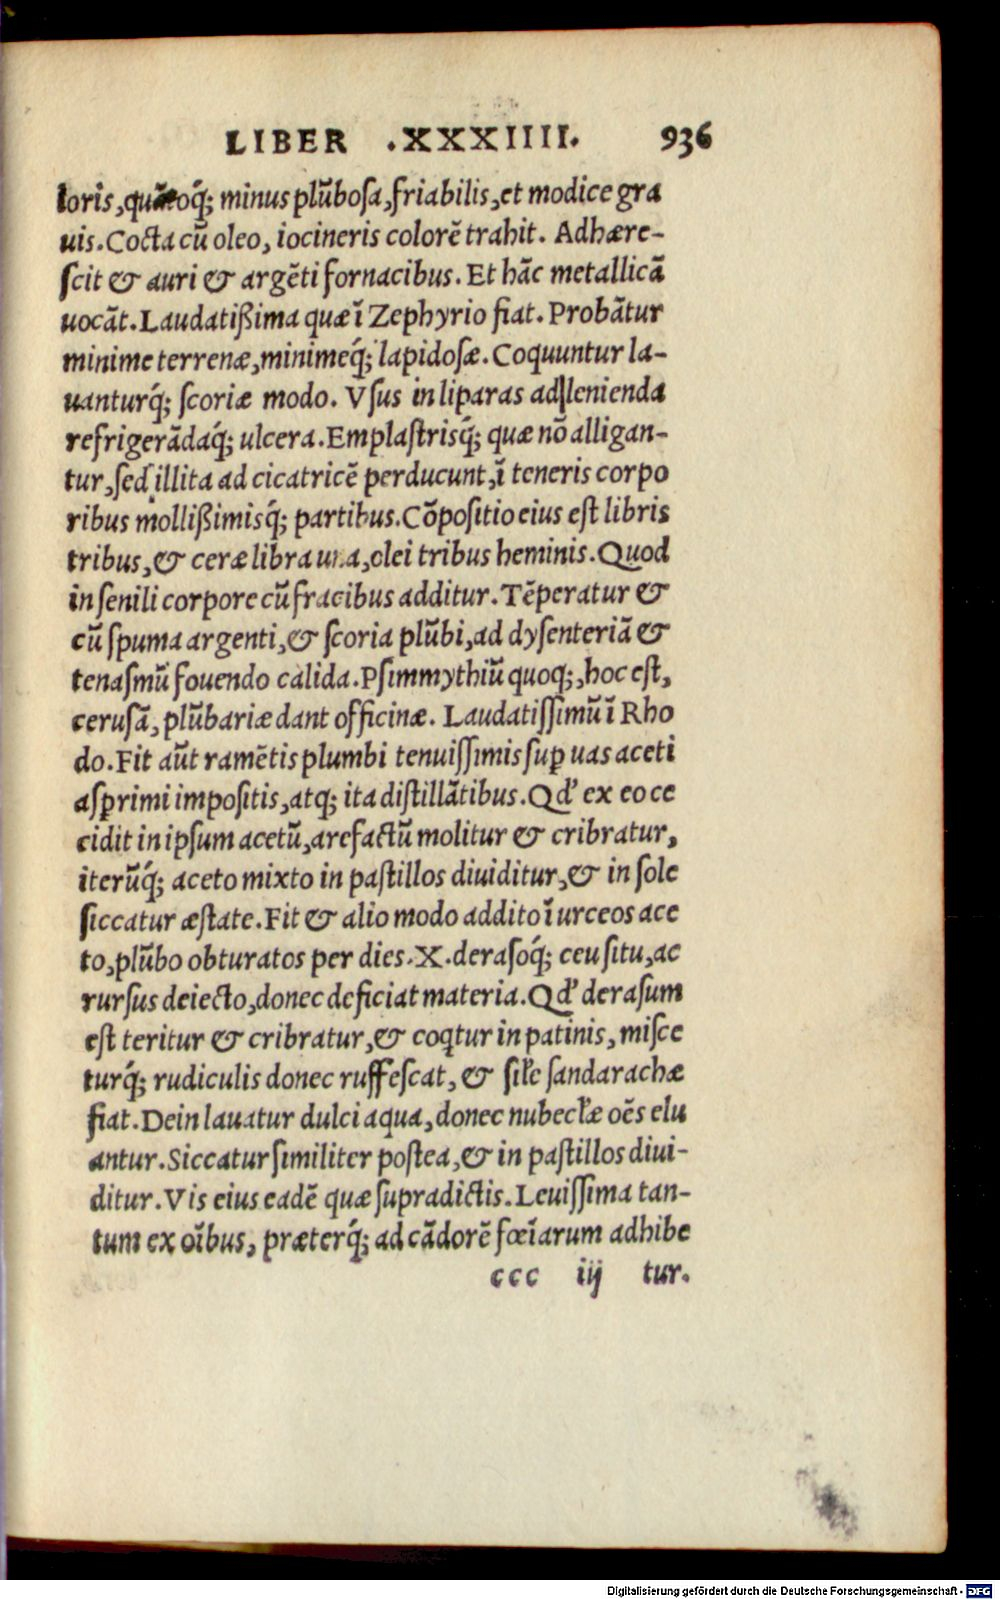 LIBER .XXXIIII. 936
loris, quãtoq́; minus plũbosa, friabilis, et modice gra
uis. Cocta cũ oleo, iocineris colorẽ trahit. Adhære-
ſcit & auri & argẽti fornacibus. Et hãc metallicã
uocãt. Laudatißima quæ ĩ Zephyrio fiat. Probãtur
minime terrenæ, minimeq́; lapidoſæ. Coquuntur la-
uanturq́; ſcoriæ modo. Vſus in liparas ad lenienda
refrigerãdaq́; ulcera. Emplaſtrisq́; quæ nõ alligan-
tur, ſed illita ad cicatricẽ perducunt, ĩ teneris corpo
ribus mollißimisq́; partibus. Cõpoſitio eius eſt libris
tribus, & ceræ libra una, olei tribus heminis. Quod
in ſenili corpore cũ fracibus additur. Tẽperatur &
cũ ſpuma argenti, & ſcoria plũbi, ad dyſenteriã &
tenaſmũ fouendo calida. Pſimmythiũ quoq;, hoc eſt,
ceruſã, plũbariæ dant officinæ. Laudatiſſimũ ĩ Rho
do. Fit aũt ramẽtis plumbi tenuiſſimis ſuꝑ uas aceti
aſꝑrimi impoſitis, atq; ita diſtillãtibus. Qď ex eo ce
cidit in ipſum acetũ, arefactũ molitur & cribratur,
iterũq́; aceto mixto in paſtillos diuiditur, & in ſole
ſiccatur æſtate. Fit & alio modo addito ĩ urceos ace
to, plũbo obturatos per dies .X. deraſoq́; ceu ſitu, ac
rurſus deiecto, donec deficiat materia. Qď deraſum
eſt teritur & cribratur, & coq̃tur in patinis, miſce
turq́; rudiculis donec ruffeſcat, & ſiłe ſandarachæ
fiat. Dein lauatur dulci aqua, donec nubecłæ oẽs elu
antur. Siccatur ſimiliter poſtea, & in paſtillos diui-
ditur. Vis eius eadẽ quæ ſupradictis. Leuiſſima tan-
tum ex oĩbus, præterq́; ad cãdorẽ fœĩarum adhibe
ccc iij tur.
Digitalisierung gefördert durch die Deutsche Forschungsgemeinschaft - DFG